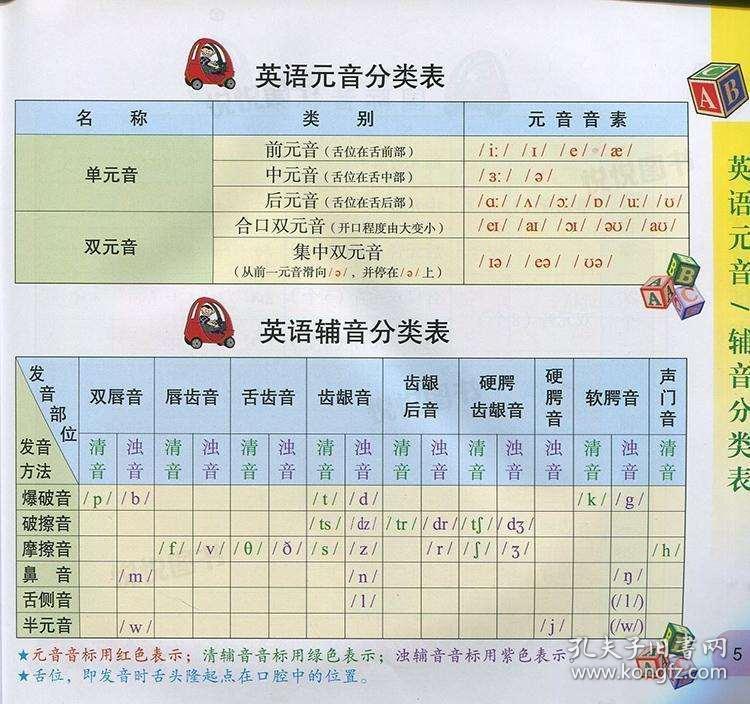 英语元音分类表
名 称 类 别 元 音 音 素
单元音 前元音(舌位在舌前部) /iː/ /ɪ/ /e/ /æ/
中元音(舌位在舌中部) /ɜː/ /ə/
后元音(舌位在舌后部) /ɑː/ /ʌ/ /ɔː/ /ɒ/ /uː/ /ʊ/
双元音 合口双元音(开口程度由大变小) /eɪ/ /aɪ/ /ɔɪ/ /əʊ/ /aʊ/
集中双元音
(从前一元音滑向/ə/,并停在/ə/上) /ɪə/ /eə/ /ʊə/
英语辅音分类表
发音部位 双唇音 唇齿音 舌齿音 齿龈音 齿龈后音 硬腭齿龈音 硬腭音 软腭音 声门音
发音方法 清音 浊音 清音 浊音 清音 浊音 清音 浊音 清音 浊音 清音 浊音 浊音 清音 浊音 清音
爆破音 /p/ /b/ /t/ /d/ /k/ /g/
破擦音 /ts/ /dz/ /tr/ /dr/ /tʃ/ /dʒ/
摩擦音 /f/ /v/ /θ/ /ð/ /s/ /z/ /r/ /ʃ/ /ʒ/ /h/
鼻 音 /m/ /n/ /ŋ/
舌侧音 /l/ (/l/)
半元音 /w/ /j/ (/w/)
★元音音标用红色表示;清辅音音标用绿色表示;浊辅音音标用紫色表示
★舌位,即发音时舌头隆起点在口腔中的位置。
英语元音/辅音分类表
A B C
A B C
5
孔夫子旧书网
www.kongfz.com